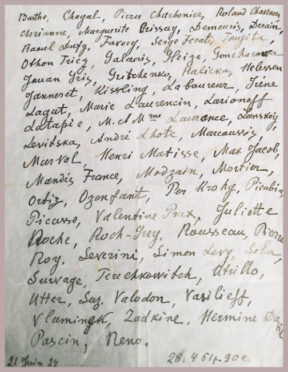 Chagal, Pierre Charbonier, Roland Chavenon,
Cherianne, Marguerite Crissay, Demeuris, Derain,
Raoul Dufy, Favory, Serge Ferat, Foujita,
Othon Friez, Galanis, Gleize, Gontcharova
Jouan Gris, Gritchenko, Halicka, Helessen
Janneret, Kissling, Laboureur, Irène
Lagut, Marie Laurencin, Larionoff
Latapie, M. et Mme Laurence, Lanskoy
Levitska, André Lhote, Marcoussis,
Marval, Henri Matisse, Max Jacob,
Mandès France, Modzain, Mortier,
Ortiz, Ozenfant, Per Krohg, Picabia
Picasso, Valentine Prax, Juliette
Roche, Roch-Grey, Rousseau, Pierre
Roy, Severini, Simon Levy, Sola,
Survage, Terechkowitch, Utrillo,
Utter, Suz. Valodon, Vasilieff,
Vlamingk, Zadkine, Hermine David
Pascin, Reno.
21 Juin 24
28.454.90c.